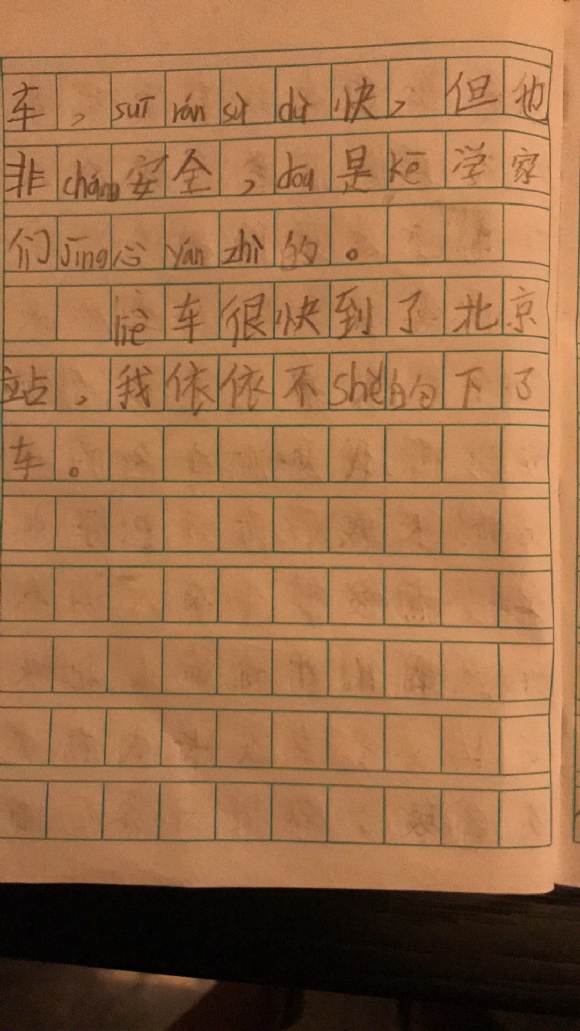 车，suī rán sù dù 快，但他
非 cháng 安全，dōu 是 kē 学家
们 jīng 心 yán zhì 的。
liè 车很快到了北京
站，我依依不 shě 的下了
车。